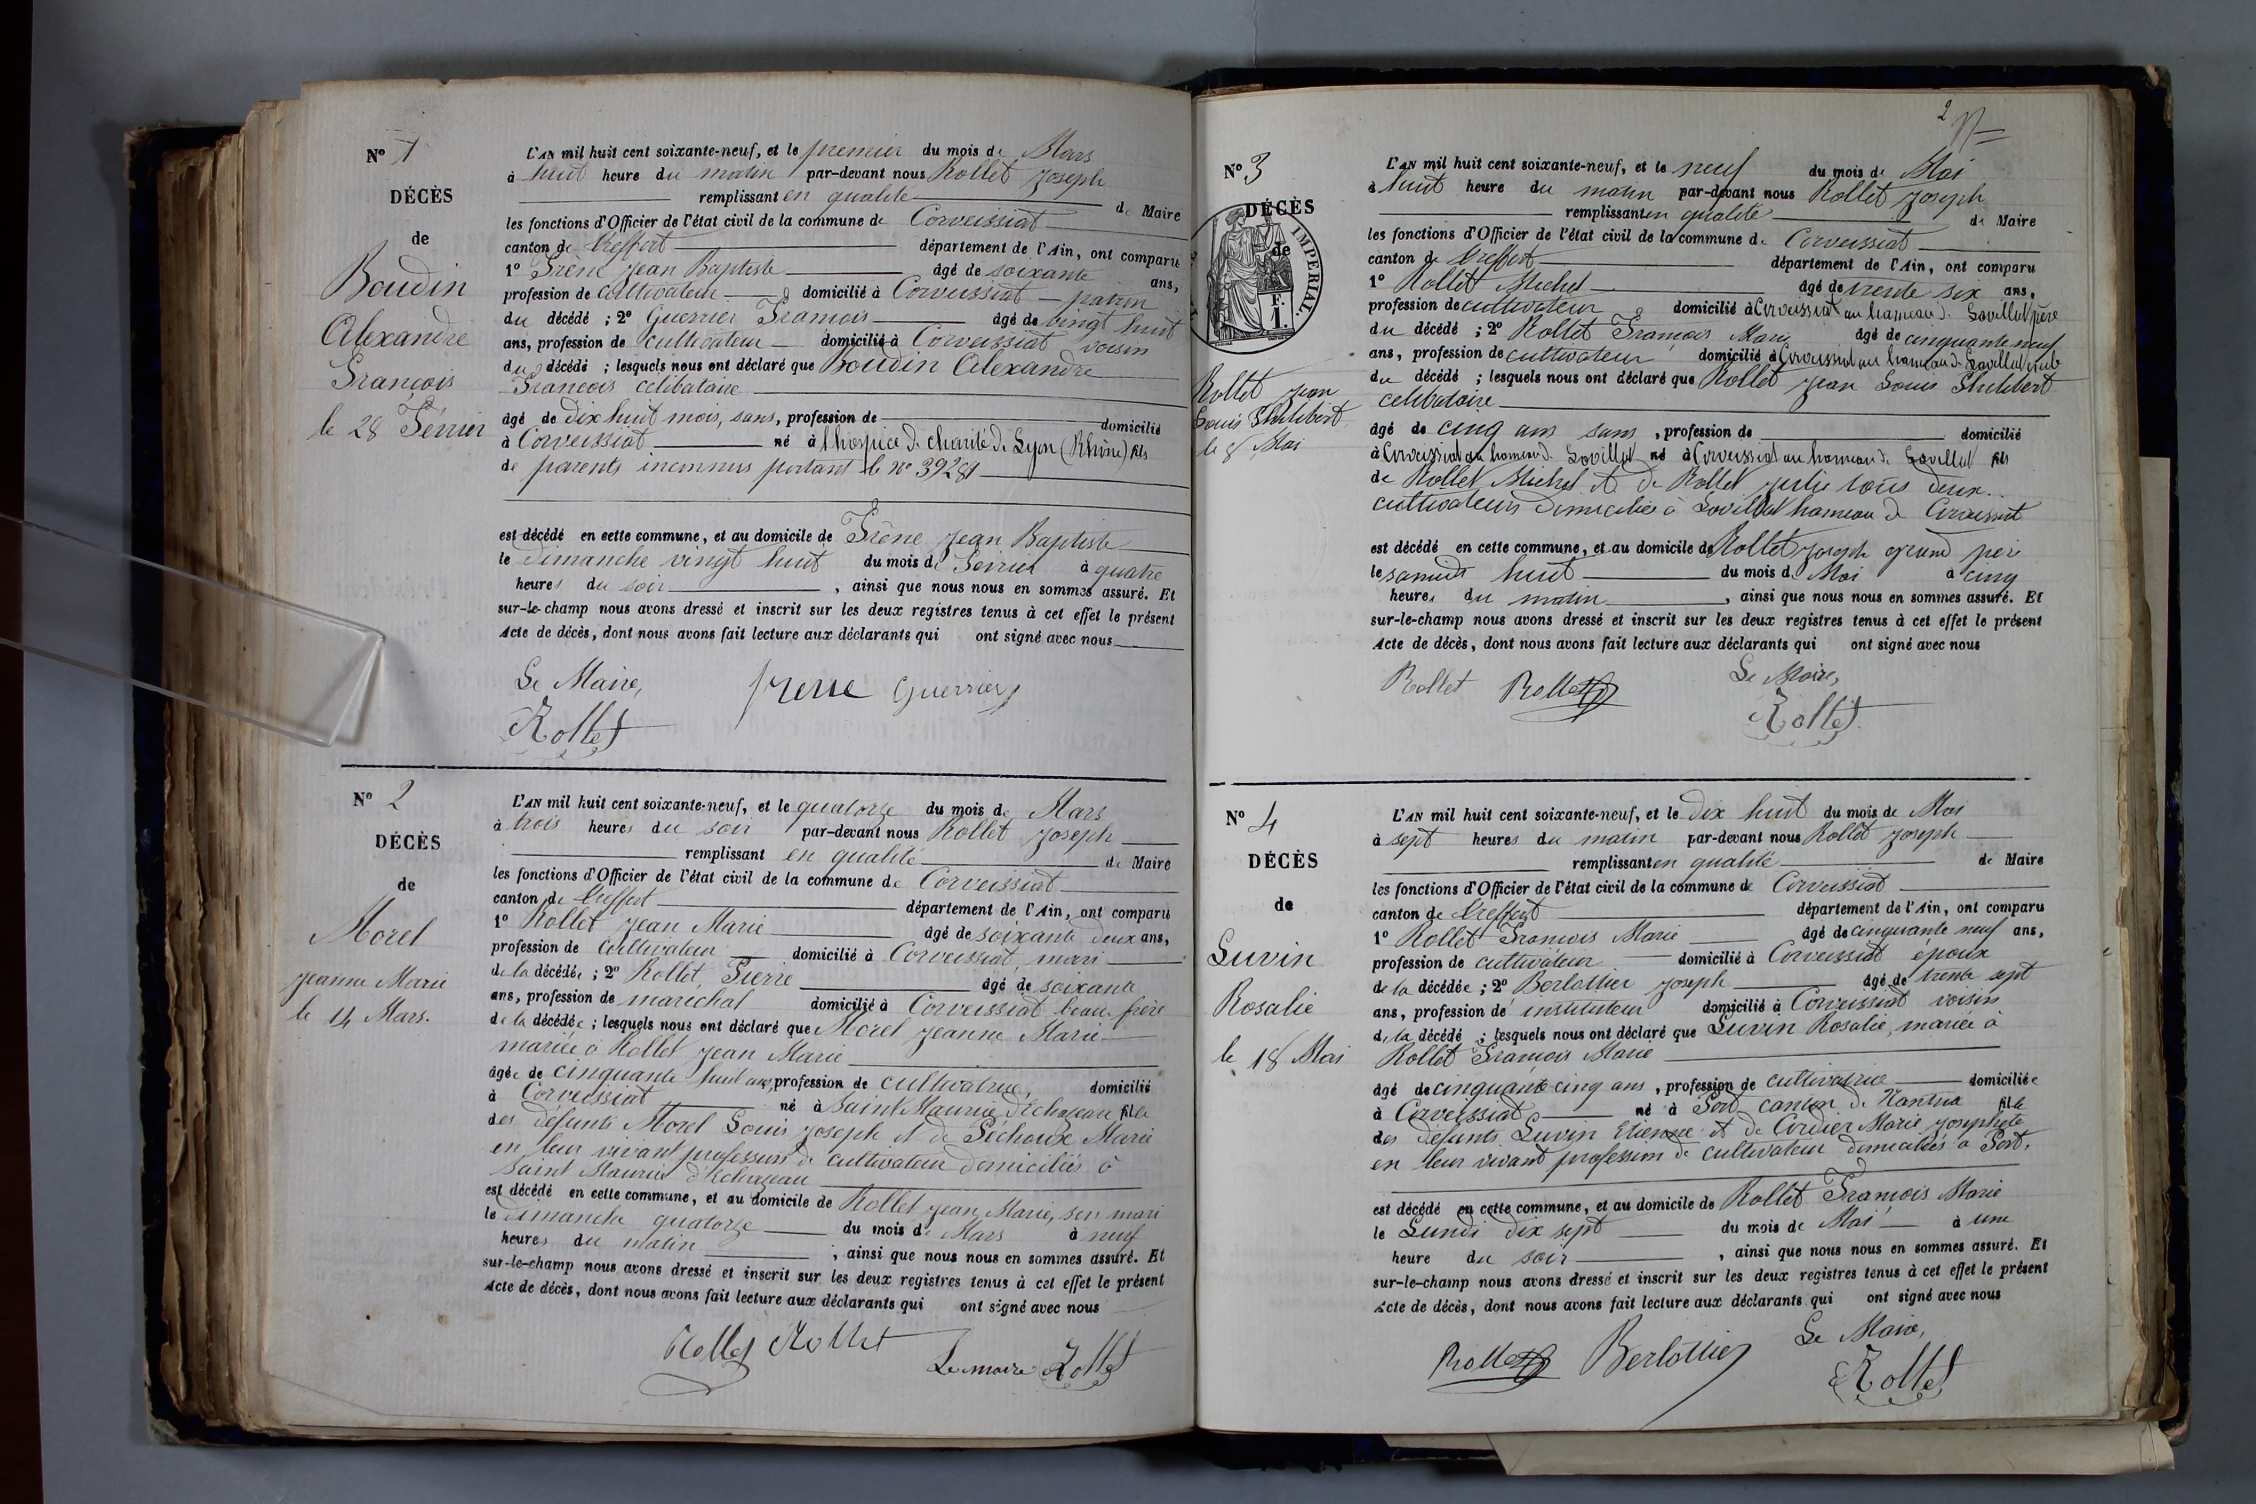 Nº 1
DÉCÈS
de
Boudin
Alexandre
François
le 28 Février
L'AN mil huit cent soixante-neuf, et le premier du mois de Mars
à huit heure du matin par-devant nous Rollet Joseph
remplissant en qualité de Maire
les fonctions d'Officier de l'état civil de la commune de Corveissiat
canton de Treffort département de l'Ain, ont comparu
1º Frène Jean Baptiste âgé de soixante ans,
profession de cultivateur domicilié à Corveissiat patron
du décédé ; 2º Guerrier François âgé de vingt huit
ans, profession de cultivateur domicilié à Corveissiat voisin
du décédé ; lesquels nous ont déclaré que Boudin Alexandre
François célibataire
âgé de dix huit mois, sans, profession de domicilié
à Corveissiat né à l'hospice de charité de Lyon (Rhône) fils
de parents inconnus portant le nº 39281
est décédé en cette commune, et au domicile de Frène Jean Baptiste
le dimanche vingt huit du mois de Février à quatre
heures du soir, ainsi que nous nous en sommes assuré. Et
sur-le-champ nous avons dressé et inscrit sur les deux registres tenus à cet effet le présent
Acte de décès, dont nous avons fait lecture aux déclarants qui ont signé avec nous
Le Maire,
frene Guerrier
Rollet
Nº 2
DÉCÈS
de
Morel
Jeanne Marie
le 14 Mars.
L'AN mil huit cent soixante-neuf, et le quatorze du mois de Mars
à trois heures du soir par-devant nous Rollet Joseph
remplissant en qualité de Maire
les fonctions d'Officier de l'état civil de la commune de Corveissiat
canton de Treffort département de l'Ain, ont comparu
1º Rollet Jean Marie âgé de soixante deux ans,
profession de cultivateur domicilié à Corveissiat, mari
de la décédée ; 2º Rollet, Pierre âgé de soixante
ans, profession de maréchal domicilié à Corveissiat beau frère
de la décédée ; lesquels nous ont déclaré que Morel Jeanne Marie
mariée à Rollet Jean Marie
âgée de cinquante huit ans, profession de cultivatrice, domicilié
à Corveissiat né à Saint Maurice d'Echazeau fille
des défunts Morel Louis Joseph et de Péchoux Marie
en leur vivant profession de cultivateur domiciliés à
Saint Maurice d'Echazeau
est décédé en cette commune, et au domicile de Rollet Jean Marie, son mari
le dimanche quatorze du mois de Mars à neuf
heures du matin, ainsi que nous nous en sommes assuré. Et
sur-le-champ nous avons dressé et inscrit sur les deux registres tenus à cet effet le présent
Acte de décès, dont nous avons fait lecture aux déclarants qui ont signé avec nous
Rollet Rollet
Le maire Rollet
2
Nº 3
DÉCÈS
de
IMPERIAL.
F.
1.
Rollet Jean
Louis Philibert
le 8 Mai
L'AN mil huit cent soixante-neuf, et le neuf du mois de Mai
à huit heure du matin par-devant nous Rollet Joseph
remplissant en qualité de Maire
les fonctions d'Officier de l'état civil de la commune de Corveissiat
canton de Treffort département de l'Ain, ont comparu
1º Rollet Michel âgé de trente six ans,
profession de cultivateur domicilié à Corveissiat au hameau de Sovillat père
du décédé ; 2º Rollet François Marie âgé de cinquante neuf
ans, profession de cultivateur domicilié à Corveissiat au hameau de Sovillat
du décédé ; lesquels nous ont déclaré que Rollet Jean Louis Philibert
célibataire
âgé de cinq ans sans, profession de domicilié
à Corveissiat au hameau de Sovillat né à Corveissiat au hameau de Sovillat fils
de Rollet Michel et de Rollet Julie tous deux
cultivateurs domiciliés à Sovillat hameau de Corveissiat
est décédé en cette commune, et au domicile de Rollet Joseph grand père
le samedi huit du mois de Mai à cinq
heures du matin, ainsi que nous nous en sommes assuré. Et
sur-le-champ nous avons dressé et inscrit sur les deux registres tenus à cet effet le présent
Acte de décès, dont nous avons fait lecture aux déclarants qui ont signé avec nous
Rollet Rollet
Le Maire,
Rollet
Nº 4
DÉCÈS
de
Luvin
Rosalie
le 18 Mai
L'AN mil huit cent soixante-neuf, et le dix huit du mois de Mai
à sept heures du matin par-devant nous Rollet Joseph
remplissant en qualité de Maire
les fonctions d'Officier de l'état civil de la commune de Corveissiat
canton de Treffort département de l'Ain, ont comparu
1º Rollet François Marie âgé de cinquante neuf ans,
profession de cultivateur domicilié à Corveissiat époux
de la décédée ; 2º Berlottier Joseph âgé de trente sept
ans, profession de instituteur domicilié à Corveissiat voisin
de la décédé ; lesquels nous ont déclaré que Luvin Rosalie, mariée à
Rollet François Marie
âgé de cinquante cinq ans, profession de cultivatrice domiciliée
à Corveissiat né à Port canton de Nantua fille
des défunts Luvin Etienne et de Cordier Marie Josephte
en leur vivant profession de cultivateur domiciliés à Port.
est décédé en cette commune, et au domicile de Rollet François Marie
le Lundi dix sept du mois de Mai à une
heure du soir, ainsi que nous nous en sommes assuré. Et
sur-le-champ nous avons dressé et inscrit sur les deux registres tenus à cet effet le présent
Acte de décès, dont nous avons fait lecture aux déclarants qui ont signé avec nous
Le Maire,
Rollet Berlottier
Rollet